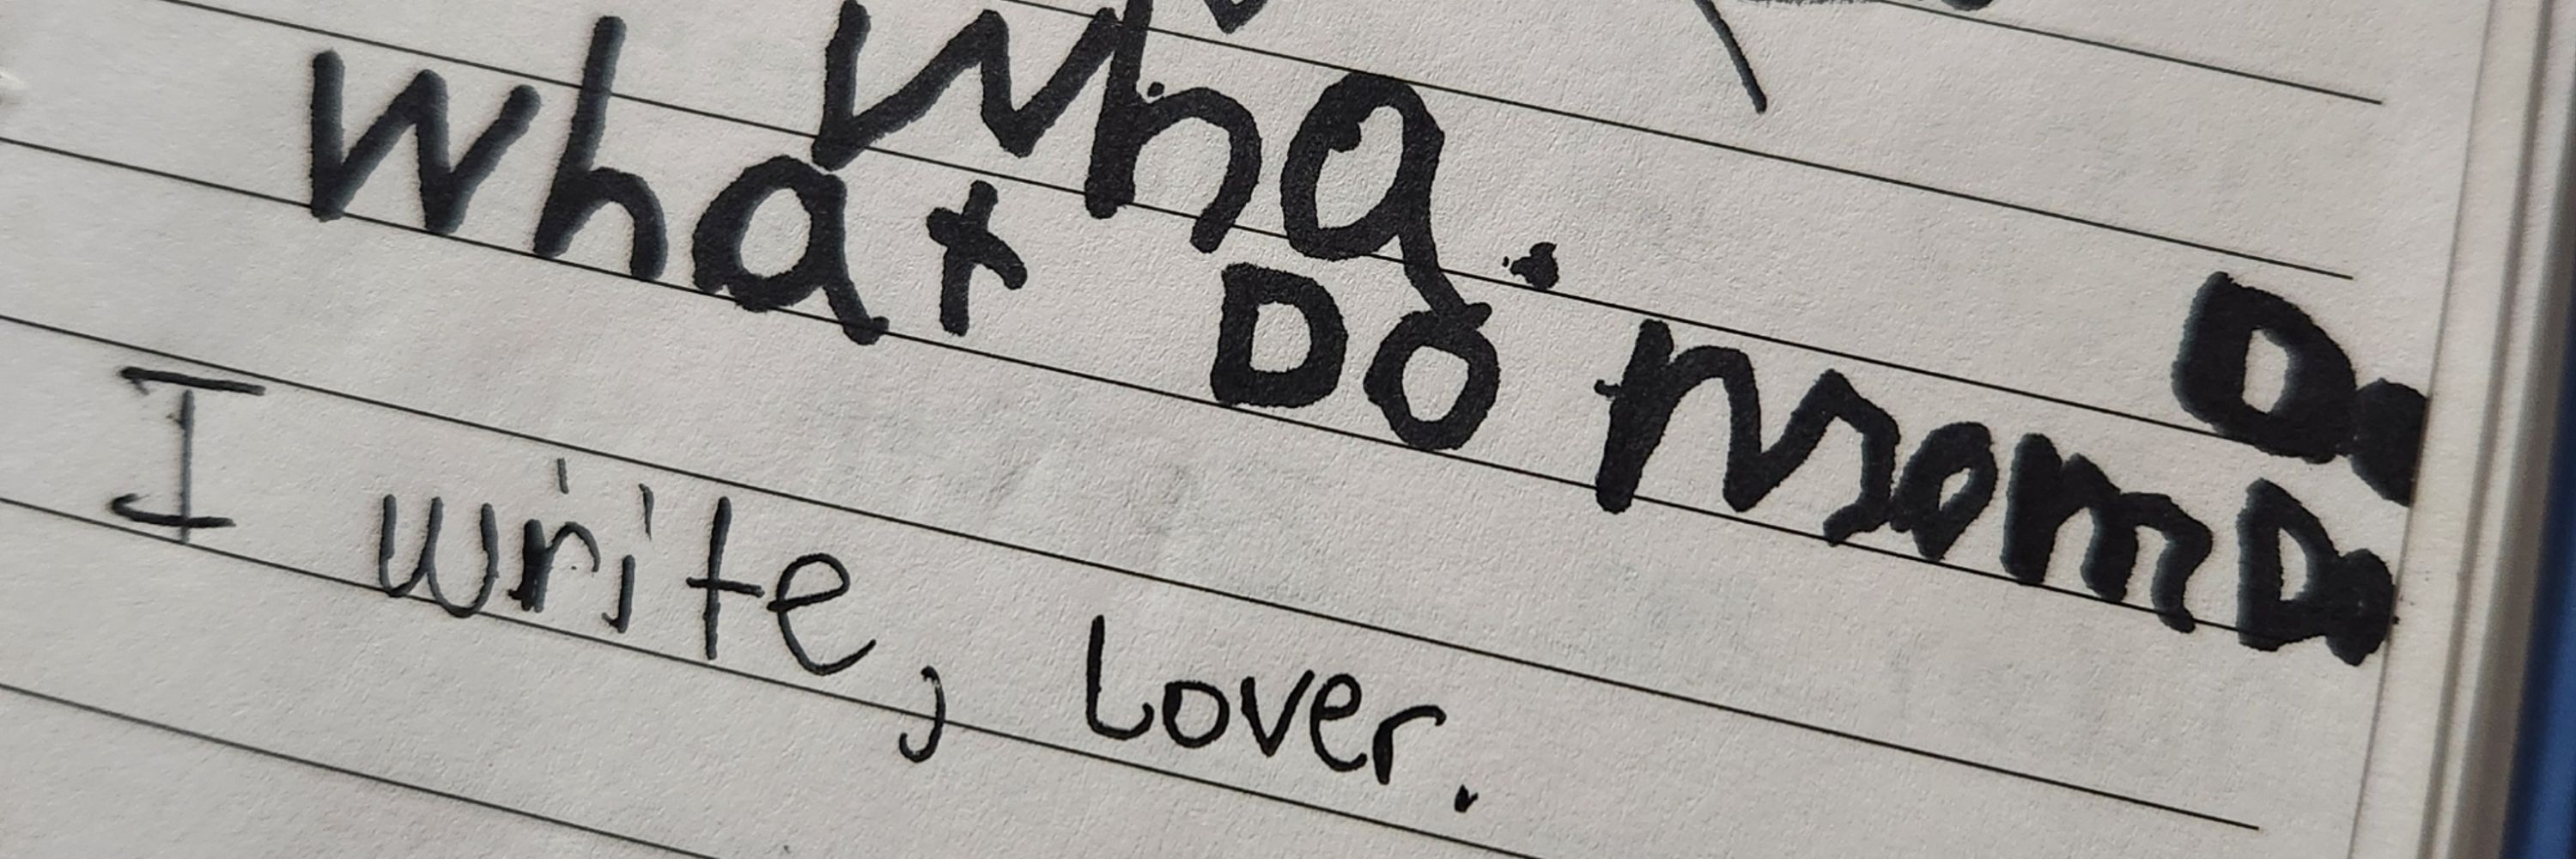 Wha.
What Do mom Do
I write, Lover.